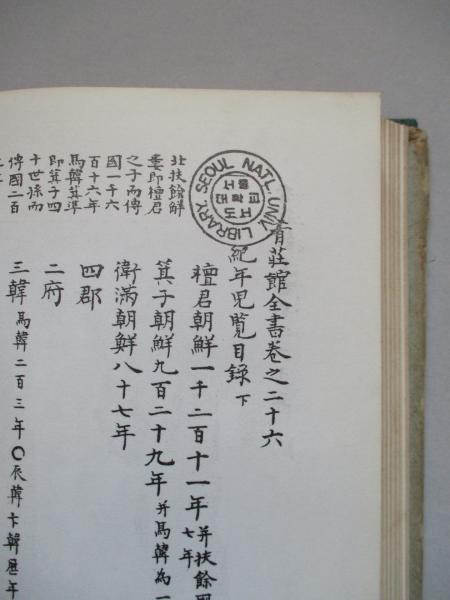 SEOUL NAT'L. UNIV. LIBRARY
서울
대학교
도서
青莊館全書卷之二十六
紀年兒覽目録 下
檀君朝鮮一千二百十一年 并扶餘
七年
箕子朝鮮九百二十九年 并馬韓為一
衛滿朝鮮八十七年
四郡
二府
三韓 馬韓二百三年〇辰韓卞韓歷年
北扶餘解
婁即檀君
之子而傳
國一千六
百十六年
馬韓箕準
即箕子四
十世孫而
傳國二百